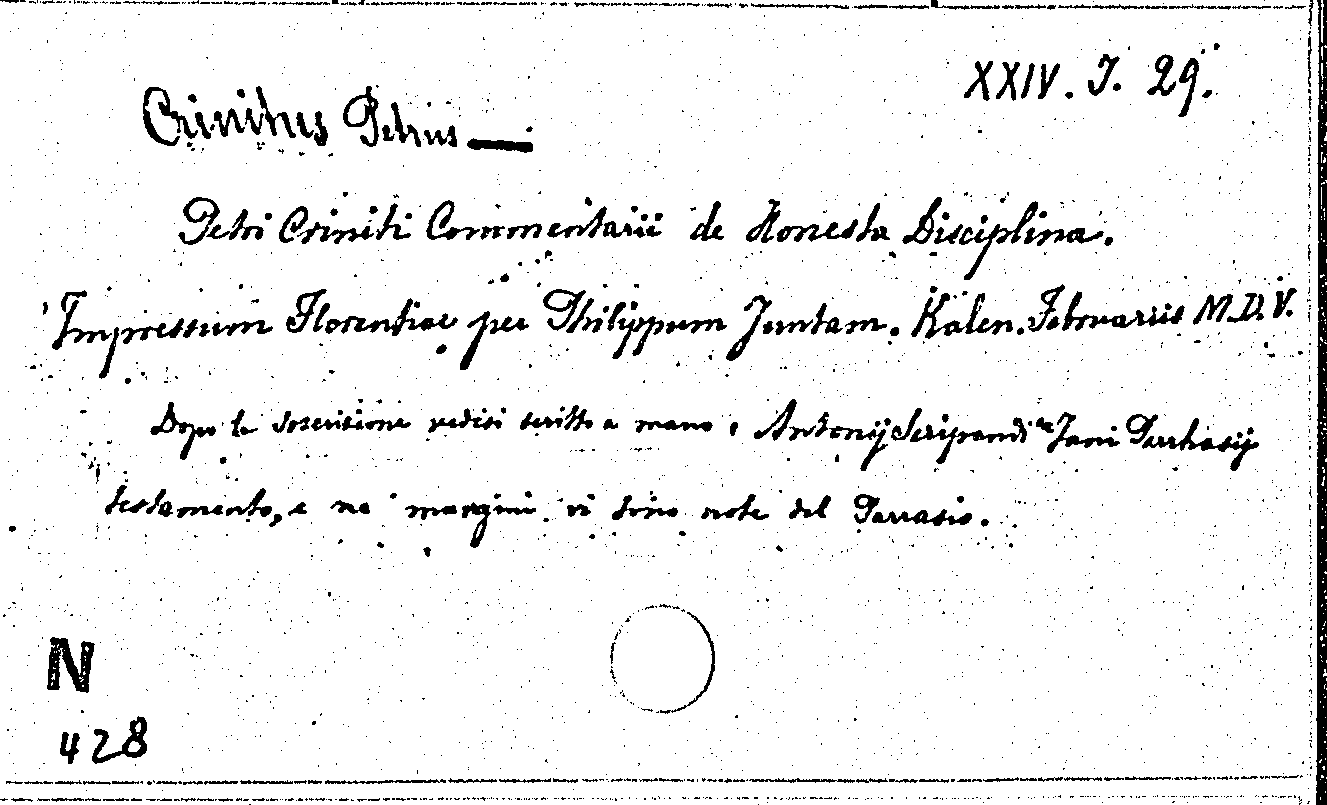 XXIV. J. 29.
Crinitus Petrus —
Petri Criniti Commentarii de Honesta Disciplina.
Impressum Florentiae per Philippum Juntam. Kalen. Februariis M.D.V.
Dopo la soscrizione vedesi scritto a mano: Antonij Seripandi ex Jani Parrhasij
testamento, e ne' margini vi sono note del Parrasio.
N
428